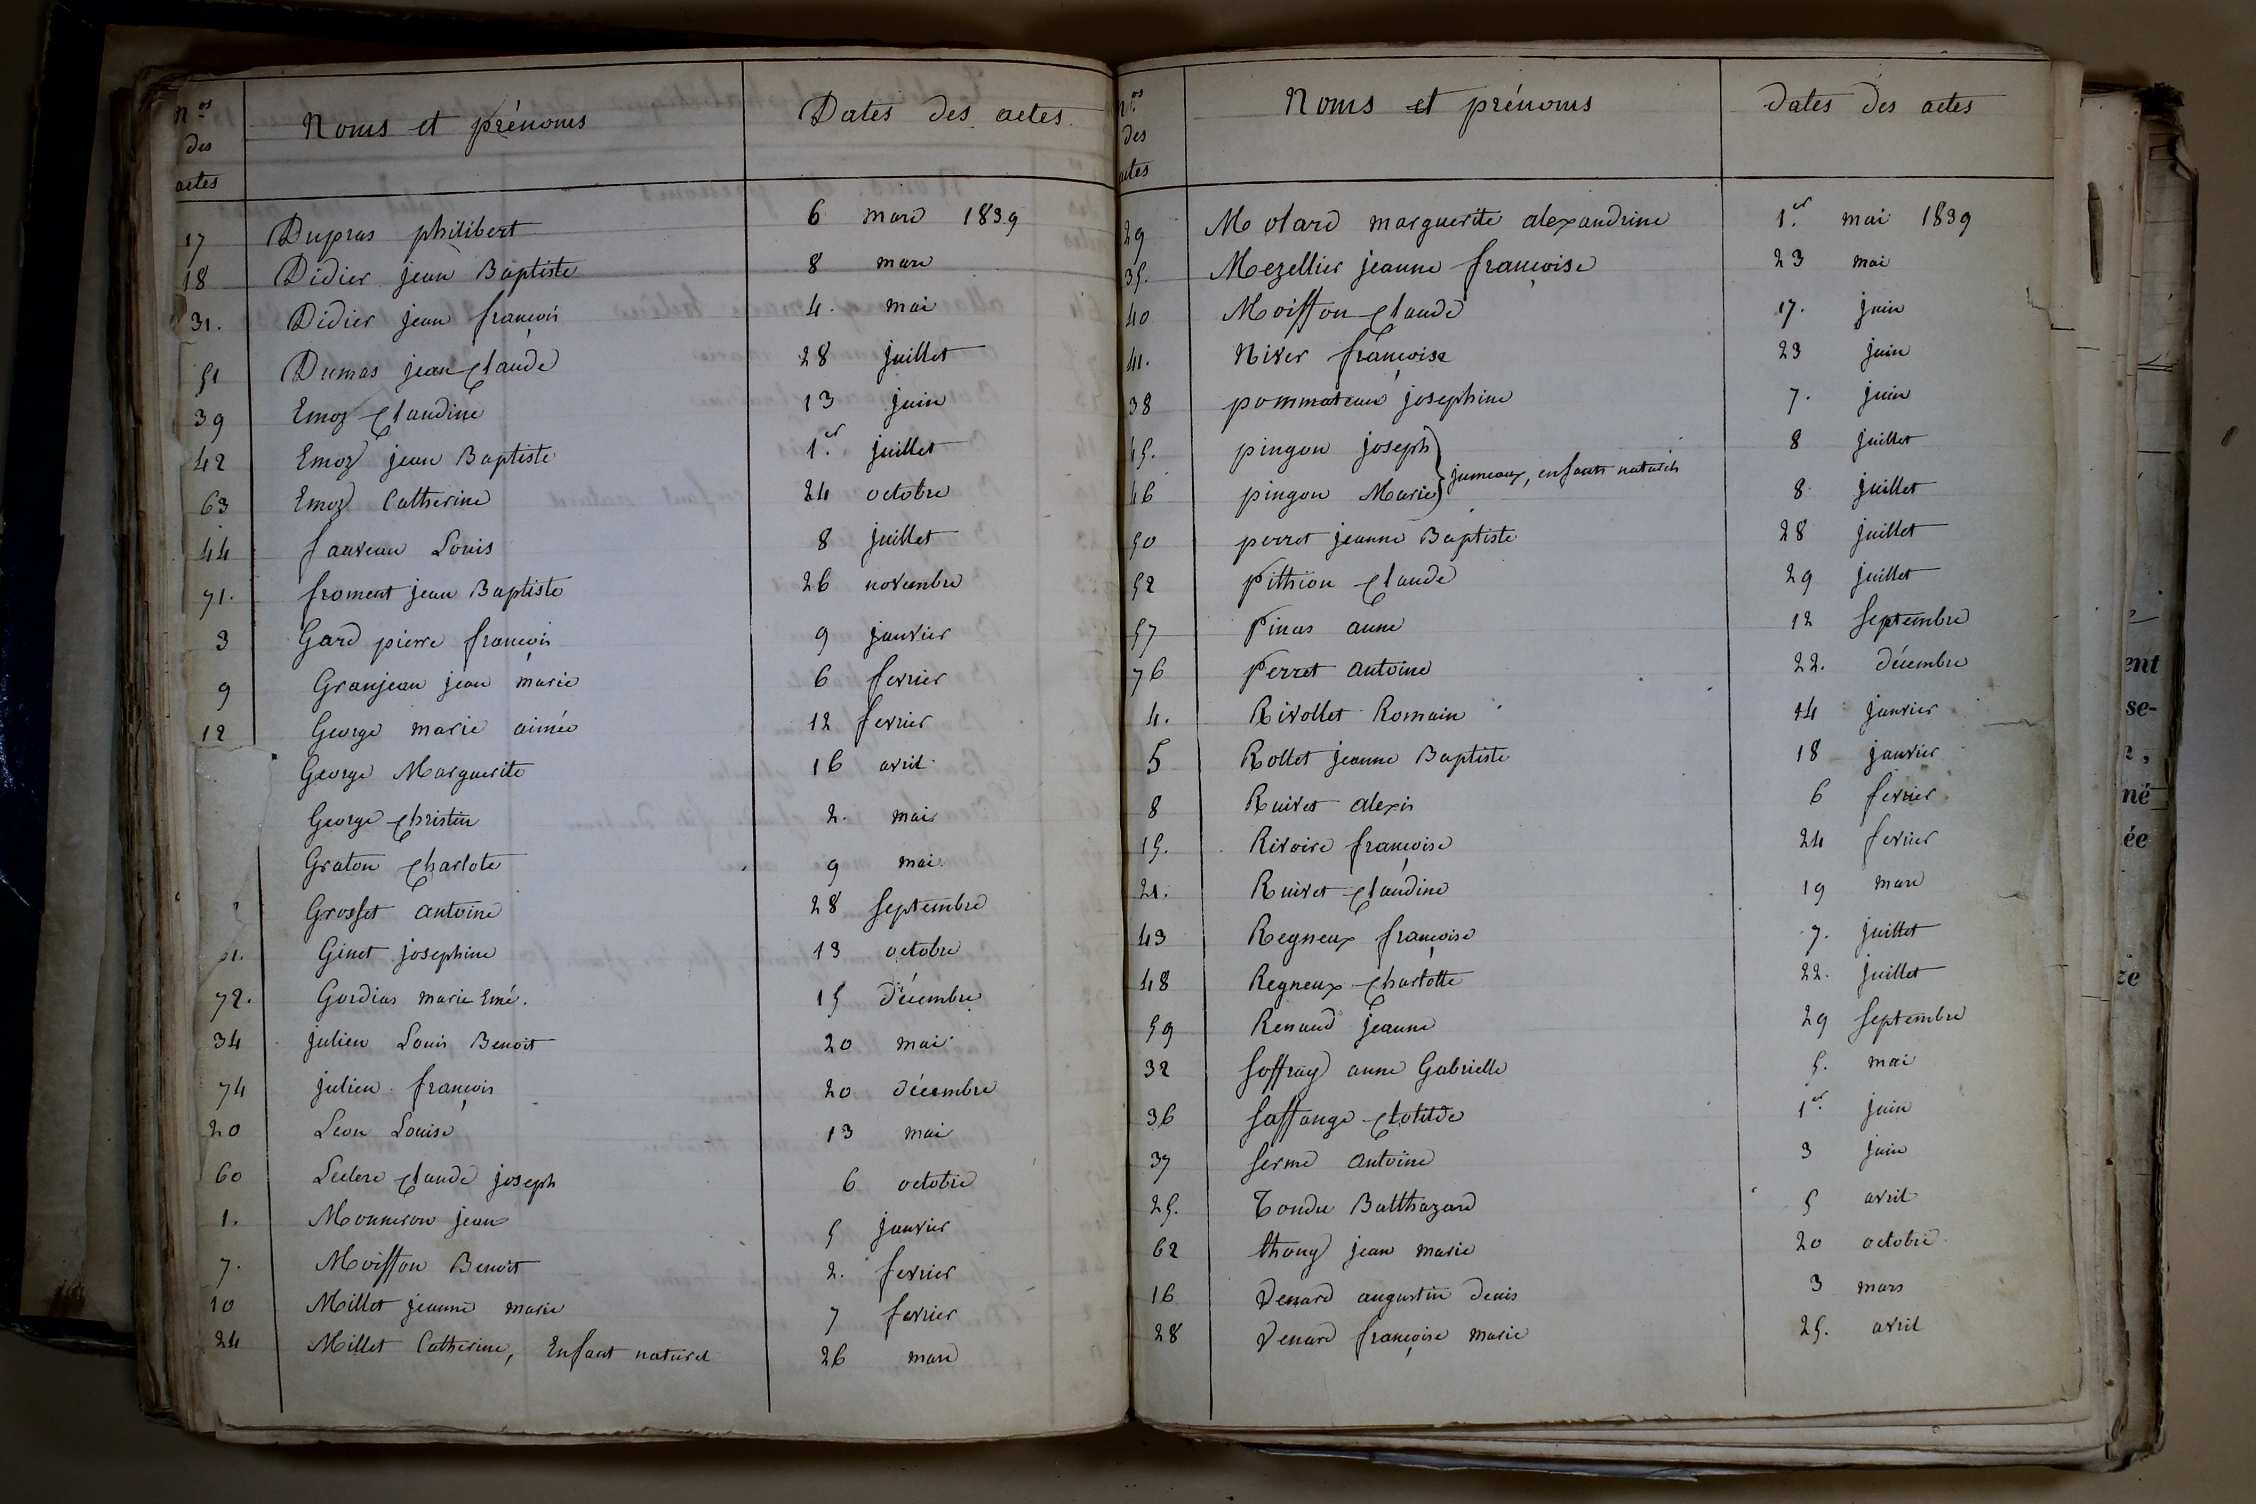 Nos des actes Noms et prénoms Dates des actes
17 Dupras philibert 6 mars 1839
18 Didier jean Baptiste 8 mars
31. Didier jean françois 4. mai
51 Dumas jean Claude 28 juillet
39 Emoz Claudine 13 juin
42 Emoz jean Baptiste 1.er juillet
63 Emoz Catherine 24 octobre
44 fauveau Louis 8 juillet
71. froment jean Baptiste 26 novembre
3 Gard pierre françois 9 janvier
9 Granjean jean marie 6 fevrier
12 George marie aimée 12 fevrier
George Marguerite 16 avril
George Christin 2. mai
Graton Charlote 9 mai
Grosset antoine 28 Septembre
1. Ginet josephine 13 octobre
72. Gordias marie Emé. 15 décembre
34 julien Louis Benoit 20 mai
74 julien françois 20 décembre
20 Leon Louise 13 mai
60 Leclerc Claude joseph 6 octobre
1. Monneron jean 5 janvier
7. Moisson Benoit 2. fevrier
10 Millet jeanne marie 7 fevrier
24 Millet Catherine, Enfant naturel 26 mars
Nos des actes Noms et prénoms dates des actes
29 Molard marguerite alexandrine 1.er mai 1839
35. Mezellier jeanne françoise 23 mai
40 Moisson Claude 17. juin
41. Niver françoise 23 juin
38 pommateau josephine 7. juin
45. pingon joseph 8 juillet
jumeaux, enfants naturels
46 pingon Marie 8 juillet
50 perret jeanne Baptiste 28 juillet
52 Pithion Claude 29 juillet
57 Pinas anne 12 Septembre
76 Perret antoine 22. décembre
4. Rivollet Romain 14 janvier
5 Rollet jeanne Baptiste 18 janvier
8 Ruivet alexis 6 fevrier
15. Rivoire françoise 24 fevrier
21. Ruivet Claudine 19 mars
43 Regneux françoise 7. juillet
48 Regneux Charlotte 22. juillet
59 Renaud jeanne 29 Septembre
32 Soffray anne Gabrielle 5. mai
36 Saffange Clotilde 1er. juin
37 Serme antoine 3 juin
25. Tondu Balthazard 5 avril
62 thony jean marie 20 octobre
16 Venard augustin denis 3 mars
28 Venard françoise marie 25. avril
ent
se-
né
ée